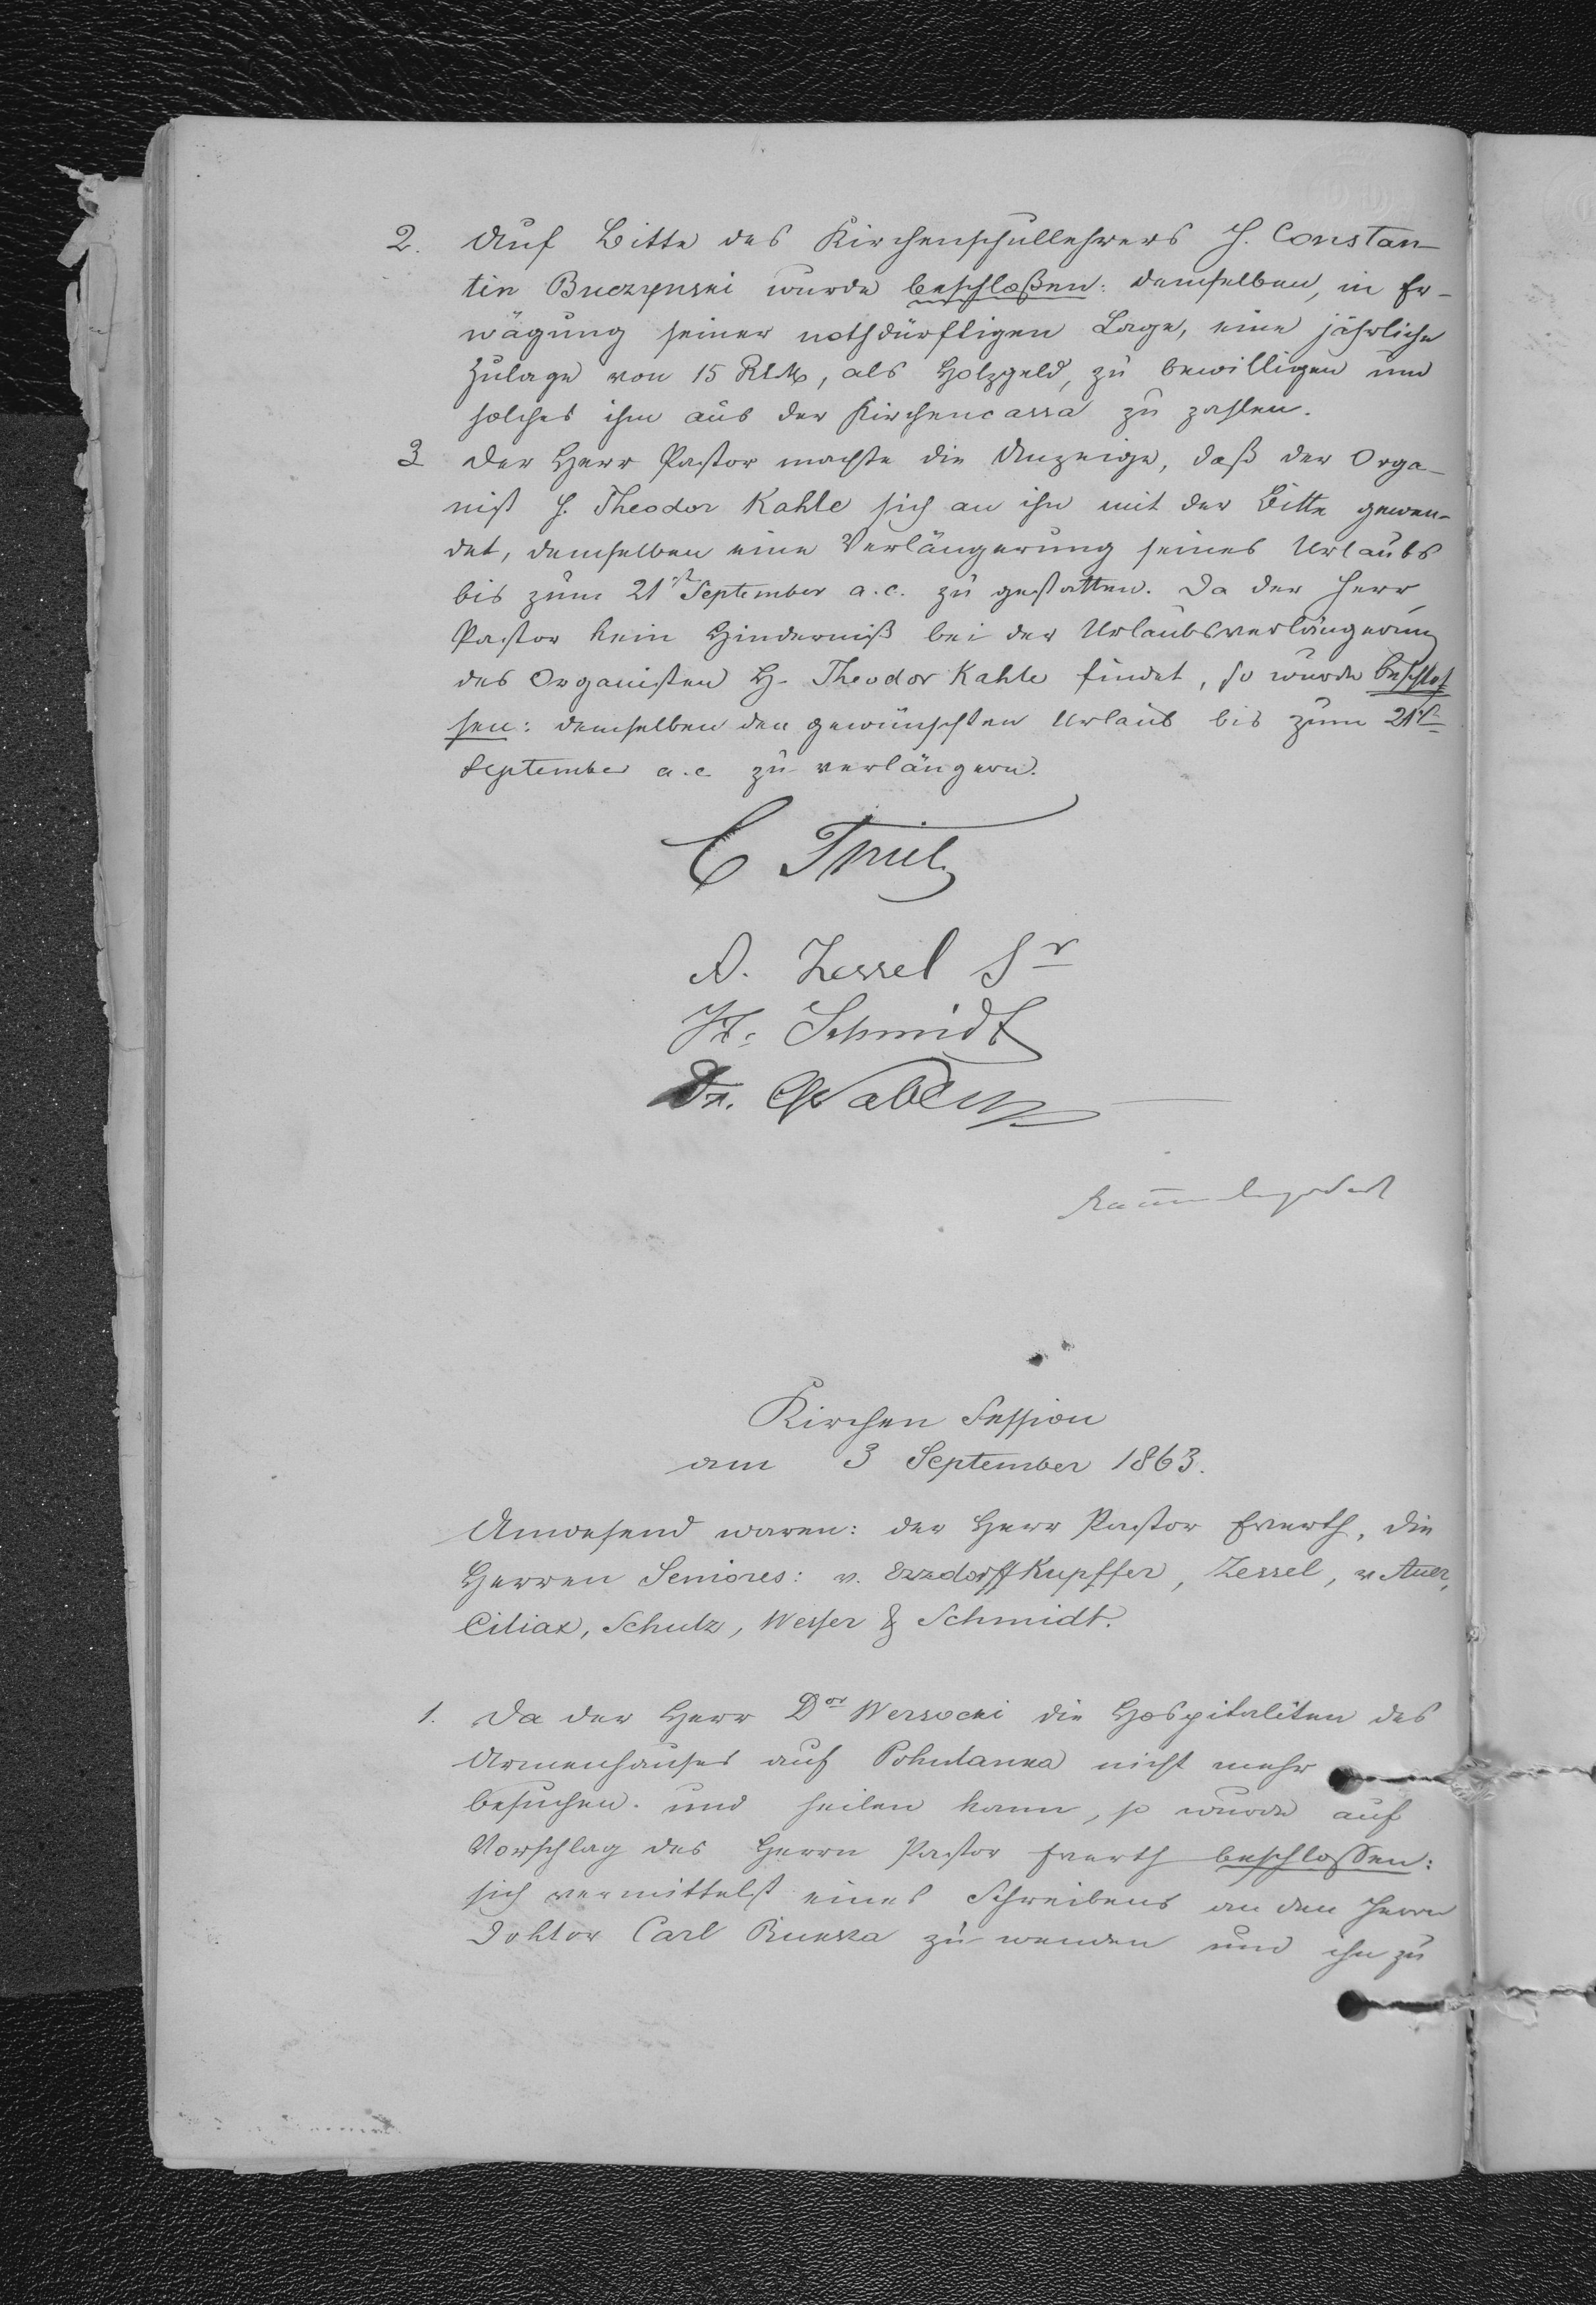 2. Auf Bitte des Kirchenschullehrers H. Constan-
tin Buczynski wurde beschloßen: demselben, in Er-
wägung seiner nothdürftigen Lage, eine jährliche
Zulage von 15 Rbl, als Holzgeld, zu bewilligen und
solches ihm aus der Kirchencassa zu zahlen.
3 Der Herr Pastor machte die Anzeige, daß der Orga-
nist H. Theodor Kahle sich an ihn mit der Bitte gewen-
det, demselben eine Verlängerung seines Urlaubs
bis zum 21 September a.c. zu gestatten. Da der Herr
Pastor kein Hinderniß bei der Urlaubsverlängerung
des Organisten H. Theodor Kahle findet, so wurde beschlos-
sen: demselben den gewünschten Urlaub bis zum 21
September a.c. zu verlängern.
C
A. Zessel Sr
Fr. Schmidt
Dr.
Kirchen Session
am 3 September 1863.
Anwesend waren: der Herr Pastor Everth, die
Herren Seniores: v. Ezzdorff Kupffer, Zessel, v Auer,
Ciliax, Schulz, Wesser & Schmidt.
1. Da der Herr Dor Wersocki die Hospitaliten des
Armenhauses auf Pohulanka nicht mehr
besuchen und heilen kann, so wurde auf
Vorschlag des Herrn Pastor Everth beschlossen:
sich vermittelst eines Schreibens an den Herrn
Doktor Carl zu wenden und ihn zu